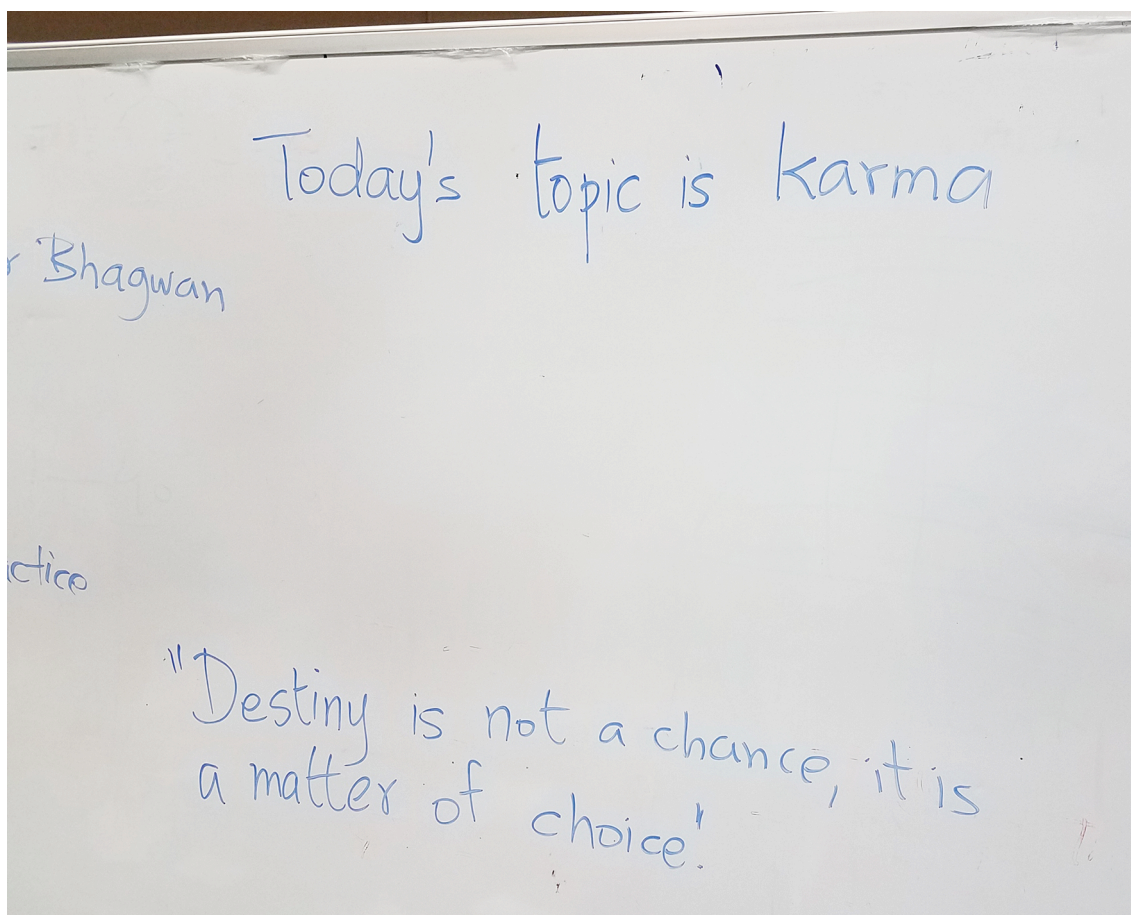 Today's topic is karma
Bhagwan
"Destiny is not a chance, it is
a matter of choice".